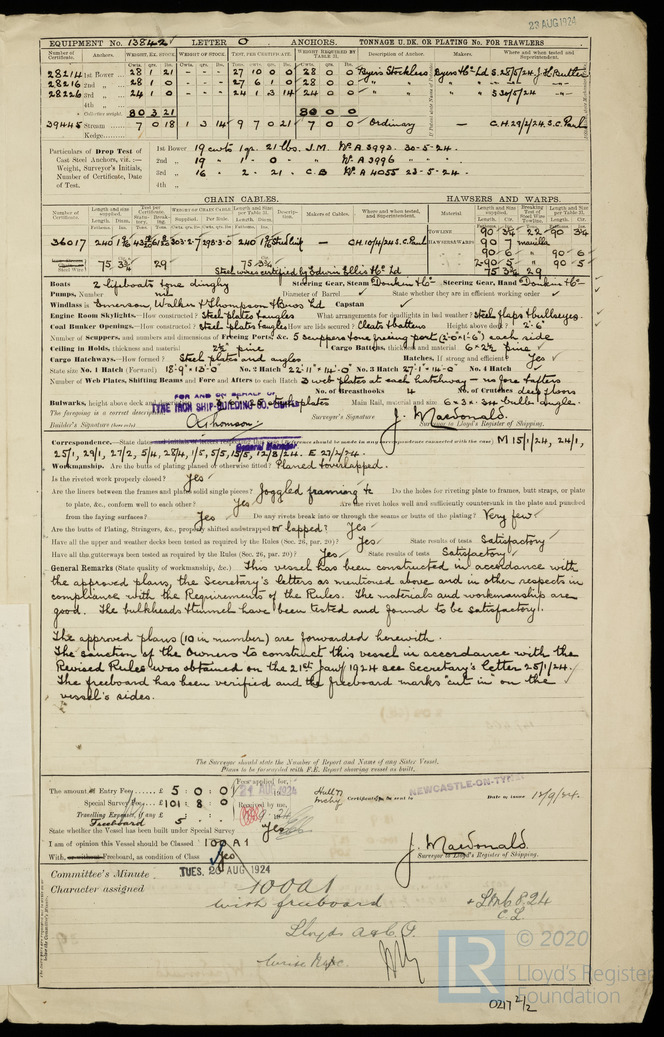 23 AUG 1924
EQUIPMENT No. 13842 LETTER O ANCHORS. TONNAGE U.DK. OR PLATING No. FOR TRAWLERS
Number of Certificate. Anchors. WEIGHT, EX. STOCK. WEIGHT OF STOCK. TEST, PER CERTIFICATE. WEIGHT REQUIRED BY TABLE 31. Description of Anchor. Makers. Where and when tested and Superintendent.
28214 1st Bower 28 1 21 - - - 27 10 0 0 28 0 0 Byers Stockless Byers & Co Ld S. 28/5/24 J.H. Butler
28216 2nd „ 28 1 0 - - - 27 6 1 0 28 0 0
28226 3rd „ 24 1 0 - - - 24 1 3 14 24 0 0 S 30/5/24
4th „
Collective weight 80 3 21 80 0 0
39445 Stream 7 0 18 1 3 14 9 7 0 21 7 0 0 Ordinary — C.H. 29/2/24 S.C. Paul
Kedge
Particulars of Drop Test of Cast Steel Anchors, viz. :— Weight, Surveyor's Initials, Number of Certificate, Date of Test.
1st Bower 19 cwts 1 qr. 21 lbs. J.M. Wr A 3993. 30-5-24.
2nd „ 19 „ 1 „ 0 „ „ Wr A 3996 „ „ „
3rd „ 16 „ 2 „ 21 „ C.B Wr A 4055 23-5-24.
4th „
CHAIN CABLES. HAWSERS AND WARPS.
Number of Certificate. Length and size supplied. Test per Certificate. WEIGHT OF CHAIN CABLE. Length and Size per Table 31. Description. Makers of Cables. Where and when tested, and Superintendent. Material Length and Size supplied. Breaking Test of Steel Wire Towline. Length and Size per Table 31.
36017 240 303-2-7 293-3-0 240 Steel link — C.H. 10/4/24 S.C. Paul
TOWLINE 90 3¼ 22 90 3¼
HAWSERS & WARPS 90 7 manilla
90 6 „ 90 6
2-90 5 „ 90 5
Steel Wire 75 3¼ 29 75 3¼ 75 3¼ 29
Steel wires certified by Edwin Ellis & Co Ld
Boats 2 lifeboats & one dinghy Steering Gear, Steam Donkin & Co Steering Gear, Hand Donkin & Co
Pumps, Number nil Diameter of Barrel State whether they are in efficient working order
Windlass is Emerson, Walker & Thompson Bros Ld Capstan
Engine Room Skylights.—How constructed? Steel plates & angles What arrangements for deadlights in bad weather? Steel flaps & bullseyes.
Coal Bunker Openings.—How constructed? Steel plates & angles How are lids secured? Cleats & battens Height above deck? 2'-6"
Number of Scuppers, and numbers and dimensions of Freeing Ports, &c. 5 scuppers & one freeing port (2'-0"×1'-6") each side
Ceiling in Holds, thickness and material 2½" pine Cargo Battens, thickness and material 6"×2½" pine
Cargo Hatchways.—How formed? Steel plates and angles Hatches, If strong and efficient? Yes
State size No. 1 Hatch (Forward) 18'-9"×13'-0" No. 2 Hatch 22'-11"×14'-0" No. 3 Hatch 27'-1"×14'-0" No. 4 Hatch
Number of Web Plates, Shifting Beams and Fore and Afters to each Hatch 3 web plates at each hatchway - no fore & afters
No. of Breasthooks 4 No. of Crutches deep floors
Bulwarks, height above deck and steel plates Main Rail, material and size 6×3×.34 bulb angle.
FOR AND ON BEHALF OF
TYNE IRON SHIP-BUILDING CO. LIMITED
The foregoing is a correct description.
Builder's Signature (here only) A Thomson General Manager
Surveyor's Signature J. Macdonald. Surveyor to Lloyd's Register of Shipping.
Correspondence.—State dates M 15/1/24, 24/1,
25/1, 29/1, 27/2, 5/4, 28/4, 1/5, 5/5, 15/5, 12/8/24. E 27/2/24.
Workmanship. Are the butts of plating planed or otherwise fitted? Planed & overlapped.
Is the riveted work properly closed? Yes
Are the liners between the frames and plates solid single pieces? Joggled framing &c Do the holes for riveting plate to frames, butt straps, or plate
to plate, &c., conform well to each other? Yes Are the rivet holes well and sufficiently countersunk in the plate and punched
from the faying surfaces? Yes Do any rivets break into or through the seams or butts of the plating? Very few
Are the butts of Plating, Stringers, &c., properly shifted and strapped or lapped? Yes
Have all the upper and weather decks been tested as required by the Rules (Sec. 26, par. 20)? Yes State results of tests Satisfactory
Have all the gutterways been tested as required by the Rules (Sec. 26, par. 20)? Yes State results of tests Satisfactory
General Remarks (State quality of workmanship, &c.) This vessel has been constructed in accordance with
the approved plans, the Secretary's letters as mentioned above and in other respects in
compliance with the Requirements of the Rules. The materials and workmanship are
good. The bulkheads & tunnel have been tested and found to be satisfactory.
The approved plans (10 in number) are forwarded herewith.
The sanction of the Owners to construct this vessel in accordance with the
Revised Rules was obtained on the 21st Jany 1924 see Secretary's letter 25/1/24.
The freeboard has been verified and the freeboard marks "cut in" on the
vessel's sides.
The Surveyor should state the Number of Report and Name of any Sister Vessel.
Please to be forwarded with F.E. Report showing vessel as built.
The amount of Entry Fee £ 5 : 0 : 0 Fees applied for, 21 AUG 1924
Special Survey Fee £ 101 : 8 : 0 Received by me,
Travelling Expenses, if any £
Freeboard 5
Certificate to be sent to NEWCASTLE-ON-TYNE Date of issue 12/9/24.
State whether the Vessel has been built under Special Survey Yes
I am of opinion this Vessel should be Classed 100A1
With, or without Freeboard, as condition of Class Yes
J. Macdonald.
Surveyor to Lloyd's Register of Shipping.
Committee's Minute TUES. 26 AUG 1924
Character assigned 100A1
with freeboard
Lloyds A & C.P.
+ LMC 8.24
C.L.
LR © 2020
Lloyd's Register
Foundation
0217 2/2